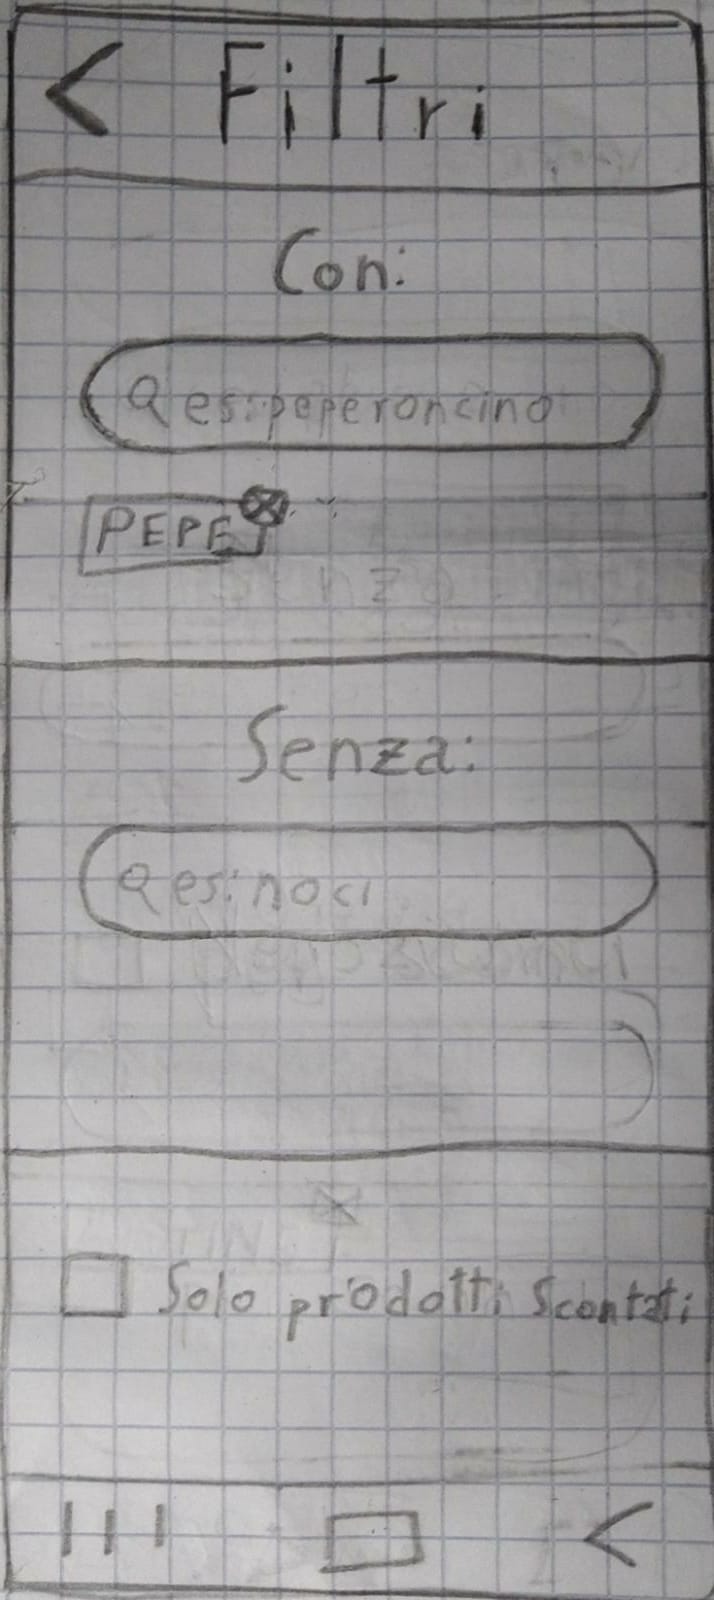 < Filtri
Con:
es: peperoncino
PEPE
Senza:
es: noci
Solo prodotti scontati